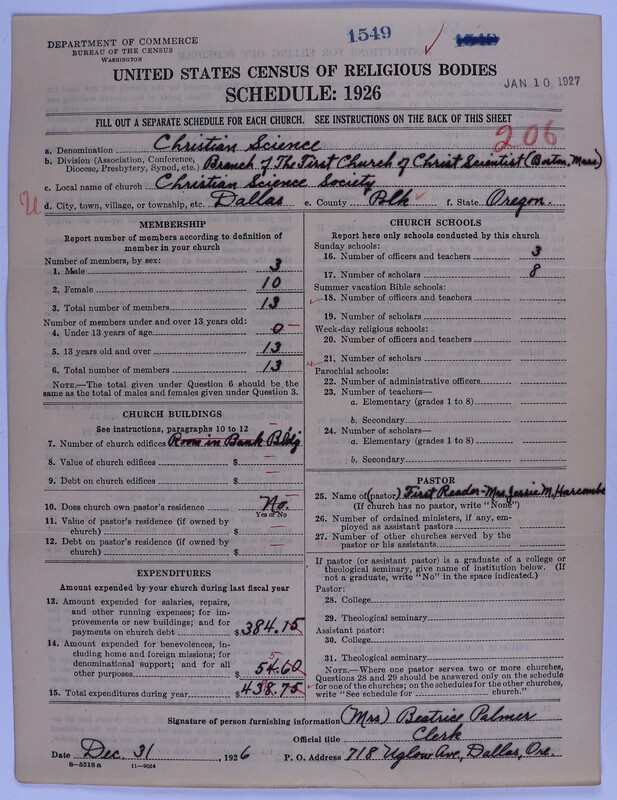 1549
1549
DEPARTMENT OF COMMERCE
BUREAU OF THE CENSUS
WASHINGTON
UNITED STATES CENSUS OF RELIGIOUS BODIES
SCHEDULE: 1926
JAN 10 1927
FILL OUT A SEPARATE SCHEDULE FOR EACH CHURCH. SEE INSTRUCTIONS ON THE BACK OF THIS SHEET
206
a. Denomination Christian Science
b. Division (Association, Conference, Diocese, Presbytery, Synod, etc.) Branch of The First Church of Christ Scientist (Boston, Mass.)
c. Local name of church Christian Science Society
d. City, town, village, or township, etc. Dallas e. County Polk f. State Oregon.
MEMBERSHIP
Report number of members according to definition of
member in your church
Number of members, by sex:
1. Male 3
2. Female 10
3. Total number of members 13
Number of members under and over 13 years old:
4. Under 13 years of age 0
5. 13 years old and over 13
6. Total number of members 13
NOTE.—The total given under Question 6 should be the
same as the total of males and females given under Question 3.
CHURCH BUILDINGS
See instructions, paragraphs 10 to 12
7. Number of church edifices Room in Bank Bldg
8. Value of church edifices $ —
9. Debt on church edifices $ —
10. Does church own pastor's residence No.
Yes or No
11. Value of pastor's residence (if owned by
church) $ —
12. Debt on pastor's residence (if owned by
church) $ —
EXPENDITURES
Amount expended by your church during last fiscal year
13. Amount expended for salaries, repairs,
and other running expenses; for im-
provements or new buildings; and for
payments on church debt $384.15
14. Amount expended for benevolences, in-
cluding home and foreign missions; for
denominational support; and for all
other purposes 54.60
15. Total expenditures during year $438.75
CHURCH SCHOOLS
Report here only schools conducted by this church
Sunday schools:
16. Number of officers and teachers 3
17. Number of scholars 8
Summer vacation Bible schools:
18. Number of officers and teachers
19. Number of scholars
Week-day religious schools:
20. Number of officers and teachers
21. Number of scholars
Parochial schools:
22. Number of administrative officers
23. Number of teachers—
a. Elementary (grades 1 to 8)
b. Secondary
24. Number of scholars—
a. Elementary (grades 1 to 8)
b. Secondary
PASTOR
25. Name of (pastor) First Reader-Mrs. Jessie M. Harcombe
(If church has no pastor, write "None")
26. Number of ordained ministers, if any, em-
ployed as assistant pastors
27. Number of other churches served by the
pastor or his assistants
If pastor (or assistant pastor) is a graduate of a college or
theological seminary, give name of institution below. (If
not a graduate, write "No" in the space indicated.)
Pastor:
28. College
29. Theological seminary
Assistant pastor:
30. College
31. Theological seminary
NOTE.—Where one pastor serves two or more churches,
Questions 28 and 29 should be answered only on the schedule
for one of the churches; on the schedules for the other churches,
write "See schedule for church."
Signature of person furnishing information (Mrs) Beatrice Palmer
Official title Clerk
Date Dec. 31, 1926 P. O. Address 718 Uglow Ave, Dallas, Ore.
8—5518 a 11—9054